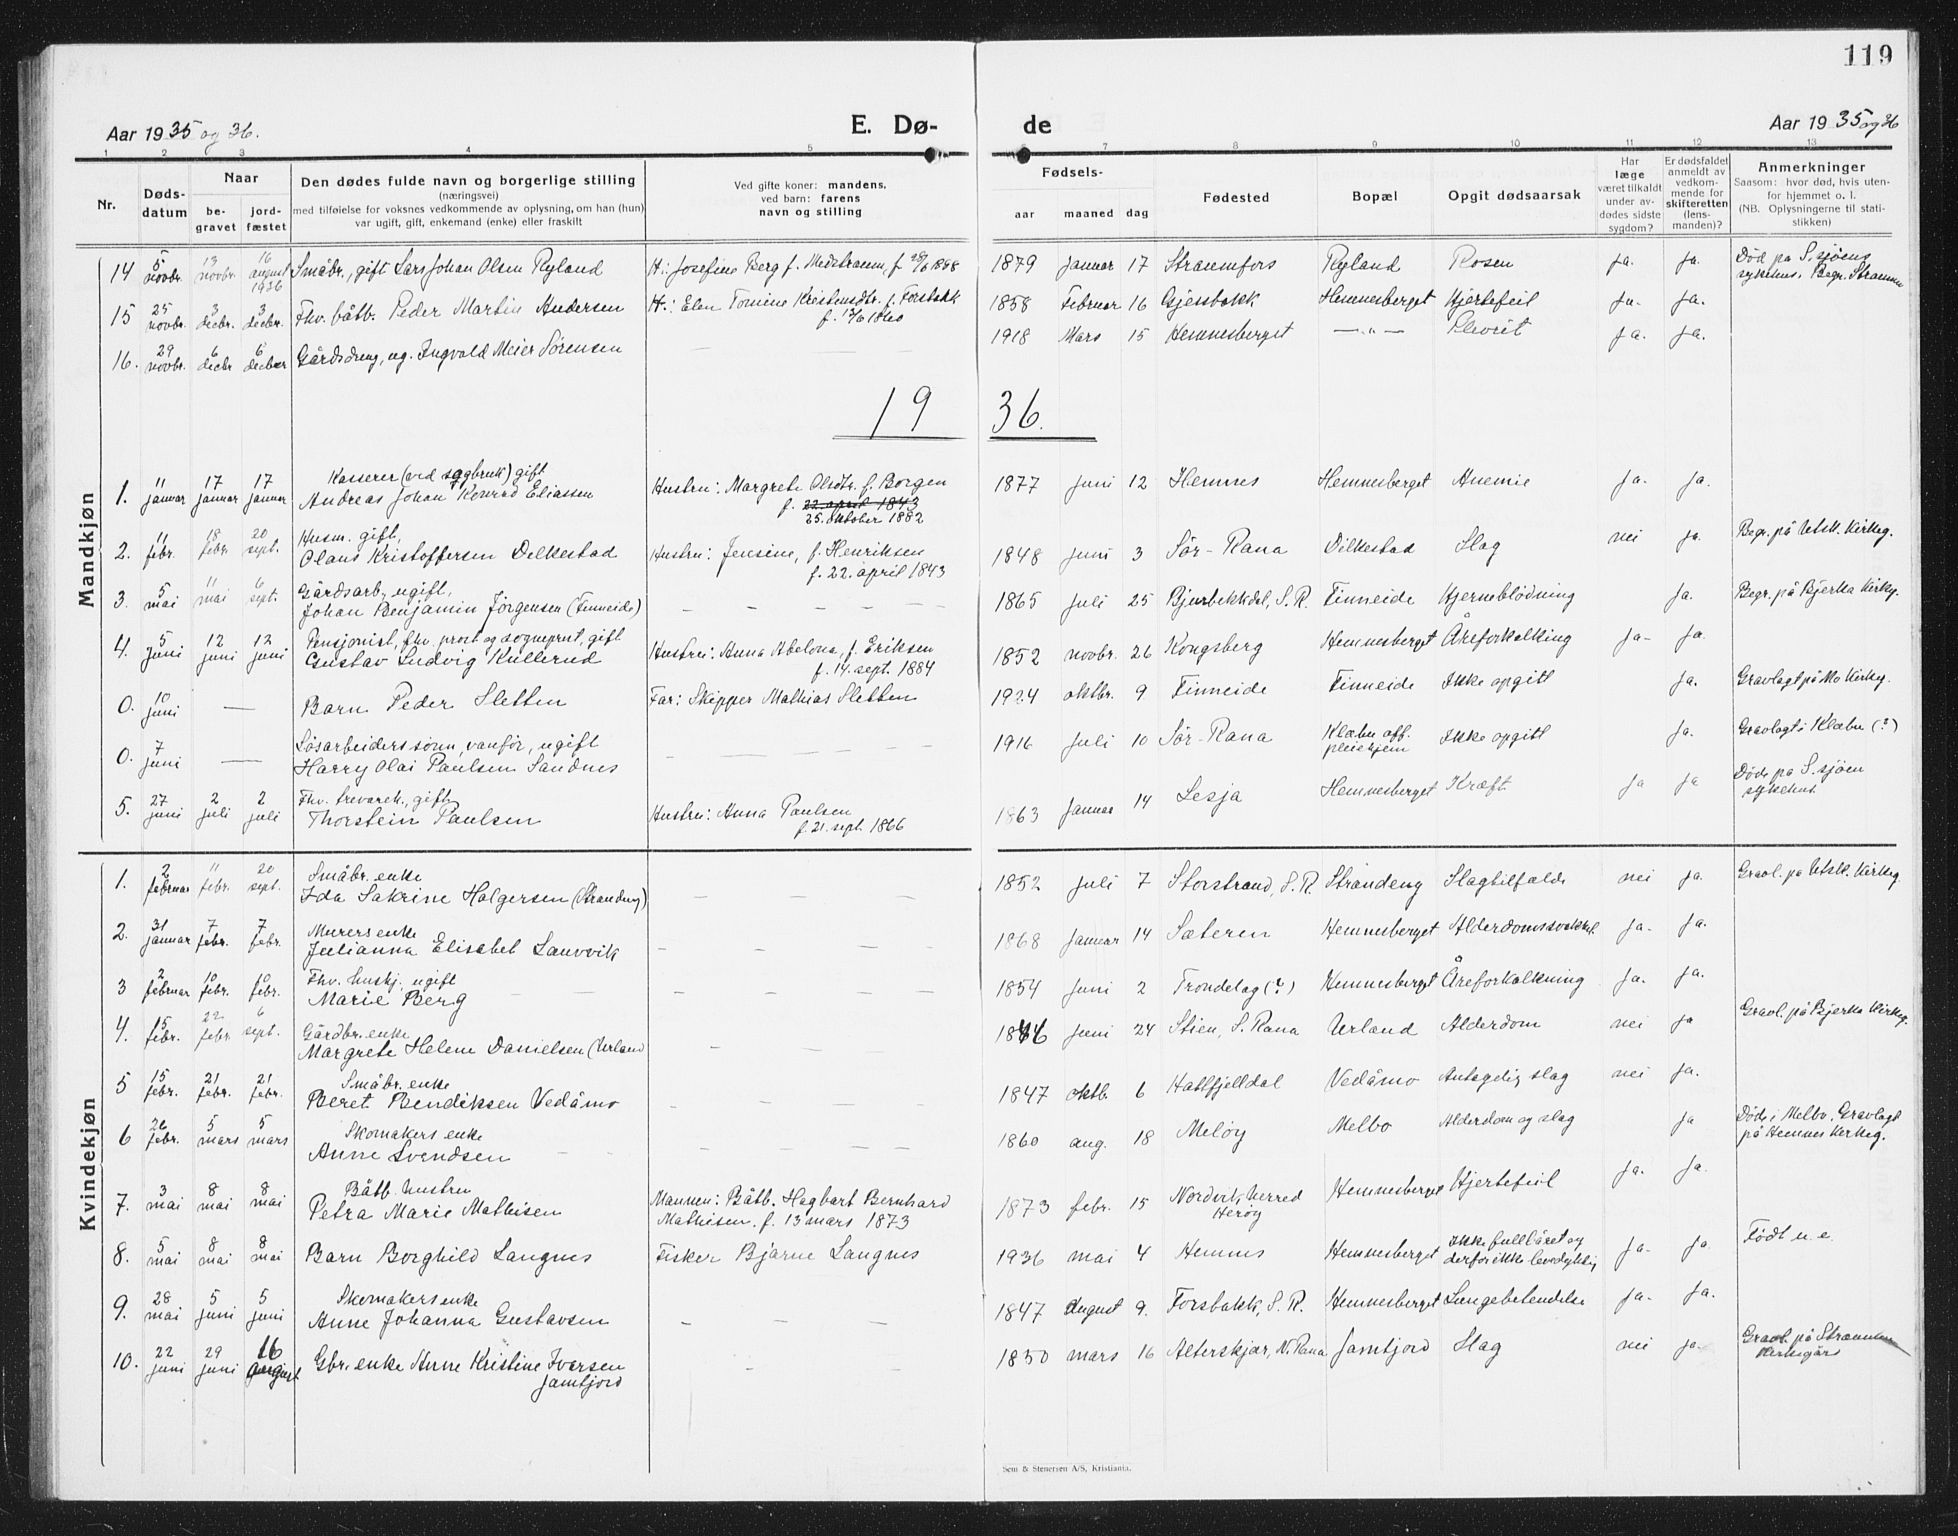 119
Aar 1935 og 36. E. Dø- de Aar 1935 og 36
1 2 3 4 5 6 7 8 9 10 11 12 13
Nr. Døds-datum Naar be-gravet jord-fæstet Den dødes fulde navn og borgerlige stilling (næringsvei) med tilføielse for voksnes vedkommende av oplysning, om han (hun) var ugift, gift, enkemand (enke) eller fraskilt Ved gifte koner: mandens, ved barn: farens navn og stilling Fødsels- aar maaned dag Fødested Bopæl Opgit dødsaarsak Har læge været tilkaldt under av-dødes sidste sygdom? Er dødsfaldet anmeldt av vedkom-mende for skifteretten (lens-manden)? Anmerkninger Saasom: hvor død, hvis uten-for hjemmet o. l. (NB. Oplysningerne til stati-stikken)
Mandkjøn
14 5 novbr. 13 novbr. 16 august 1936 Småbr., gift Lars Johan Olsen Ryland H: Josefine Berg f. 1888 1879 Januar 17 Straumfors Ryland Rosen ja. ja. Død på S.sjøens sykehus. Begr. Straumen
15 25 novbr. 3 decbr. 3 decbr. Fhv. båtb. Peder Martin Andersen H.: Elen Tomine Kristensdtr. f. Forsbakk f. 1860 1858 Februar 16 Gjesbakk Hemnesberget Hjertefeil ja. ja.
16. 29 novbr. 6 decbr 6 decber Gårdsdreng, ug. Ingvald Meier Sørensen — — — 1918 Mars 15 Hemnesberget —"— Plevrit ja. ja.
1936.
1. 11 januar 17 januar 17 januar Kasserer (ved sagbruk) gift Andreas Johan Konrad Eliassen Hustru: Margrete Olsdtr. f. Borgen f. 22 april 1843 25. oktober 1882 1877 juni 12 Hemnes Hemnesberget Anemie ja. ja.
2. 11 febr. 18 febr 20 sept. Husm. gift, Olaus Kristoffersen Dilkestad Hustru: Jensine, f. Henriksen f. 22. april 1843 1848 juni 3 Sör-Rana Dilkestad Slag nei ja. Begr. på Utsk. Kirkeg.
3. 5 mai 11 mai 6 sept. Gårdsarb., ugift, Johan Benjamin Jörgensen (Finneide) — — — — 1865 juli 25 Bjurbekkdal, S. R. Finneide Hjerneblödning ja. Begr. på Bjerka Kirkeg.
4. 5 juni 12 juni 12 juni Pensjonist, fhv. prost og sogneprest, gift Gustav Ludvig Kullerud Hustru: Anna Abelona, f. Eriksen f. 14. sept. 1884 1852 novbr. 26 Kongsberg Hemnesberget Åreforkalkning ja- ja.
0. 10 juni — Barn Peder Sletten Far: Skipper Mathias Sletten 1924 oktbr. 9 Finneide Finneide Ikke opgitt ja. Gravlagt på Mo Kirkeg.
0. 7 juni — Løsarbeiders sönn, vanför, ugift Harry Olai Paulsen Sandnes — — — — 1916 juli 10 Sör-Rana Klæbu off. pleiehjem Ikke opgitt ja. Gravlagt i Klæbu (?)
5. 27 juni 2 juli 2 juli Fhv. trevarek., gift Thorstein Paulsen Hustru: Anna Paulsen f. 21. sept. 1866 1863 januar 14 Lesja Hemnesberget Kræft ja ja Døde på S.sjøen sykehus
Kvindekjøn
1. 2 februar 11 febr. 20 sept. Småbr. enke Ida Sakrine Holgersen (Strandeng) — — — 1852 juli 7 Storstrand, S. R. Strandeng Slagtilfælde nei ja. Gravl. på Utsk. Kirkeg.
2. 31 januar 7 febr. 7 febr. Murers enke Julianna Elisabet Lauvvik — — — — 1868 januar 14 Sæteren Hemnesberget Alderdomssvakhet ja. ja.
3 2 februar 10 febr. 10 febr. Fhv. huskj. ugift Marie Berg — — — — 1854 juni 2 Trøndelag (?) Hemnesberget Åreforkalkning ja. ja.
4. 15 febr. 22 febr 6 sept. Gårdbr. enke Margrete Helene Danielsen (Urland — — — 1846 juni 24 Stien, S. Rana Urland Alderdom nei ja Gravl. på Bjerka Kirkeg.
5 15 febr. 21 febr. 21 febr. Småbr. enke Beret Bendiksen Vedåmo — — — — 1847 oktb. 6 Hattfjelldal Vedåmo Antagelig slag nei ja.
6 26 febr. 5 mars 5 mars Skomakers enke Anne Svendsen — — — — 1860 aug. 18 Meløy Melbo Alderdom og slag ja Døde i Melbo. Gravlagt på Hemnes Kirkeg.
7. 3 mai 8 mai 8 mai Båtb. hustru Petra Marie Mathisen Mannen: Båtb. Hagbart Bernhard Mathisen, f. 13 mars 1873 1873 febr. 15 Nordvik, herred Herøy Hemnesberget Hjertefeil ja. ja.
8. 5 mai 8 mai 8 mai Barn Borghild Langnes Fisker Bjarne Langnes 1936 mai 4 Hemnes Hemnesberget Ikke fullbåret og derfor ikke levedyktig ja. ja. Født u.e.
9. 28 mai 5 juni 5 juni Skomakers enke Anne Johanna Gustavsen — — — — 1847 August 9. Forsbakk, S. R. Hemnesberget Lungebetendelse ja. ja.
10. 22 juni 29 juni 16 august Gbr. enke Anne Kristine Iversen Jamtjord — — — 1850 mars 16 Alterskjær, N. Rana Jamtjord Slag nei ja. Gravl. på Straumen kirkegård
Sem & Stenersen A/S, Kristiania.